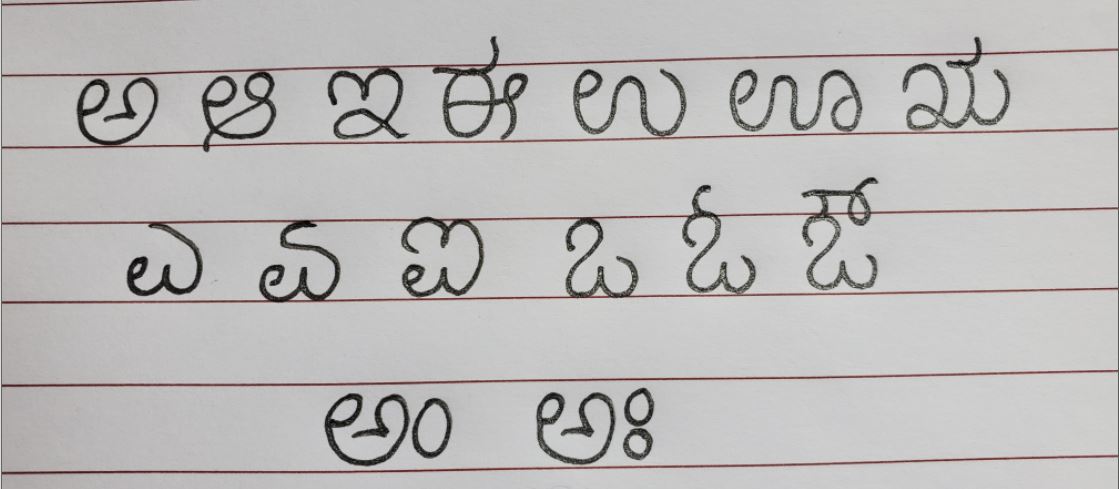 ಅ ಆ ಇ ಈ ಉ ಊ ಋ
ಎ ಏ ಐ ಒ ಓ ಔ
ಅಂ ಅಃ